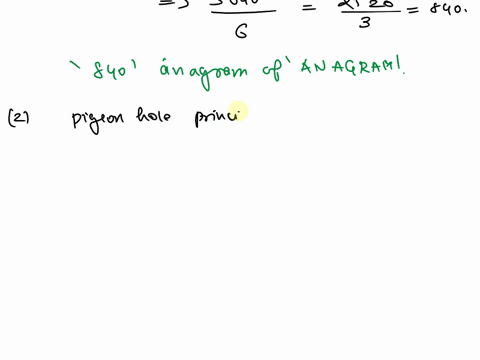 => 5040/6 = 2520/3 = 840.
'840' anagram of 'ANAGRAM'.
(2) pigeon hole princi